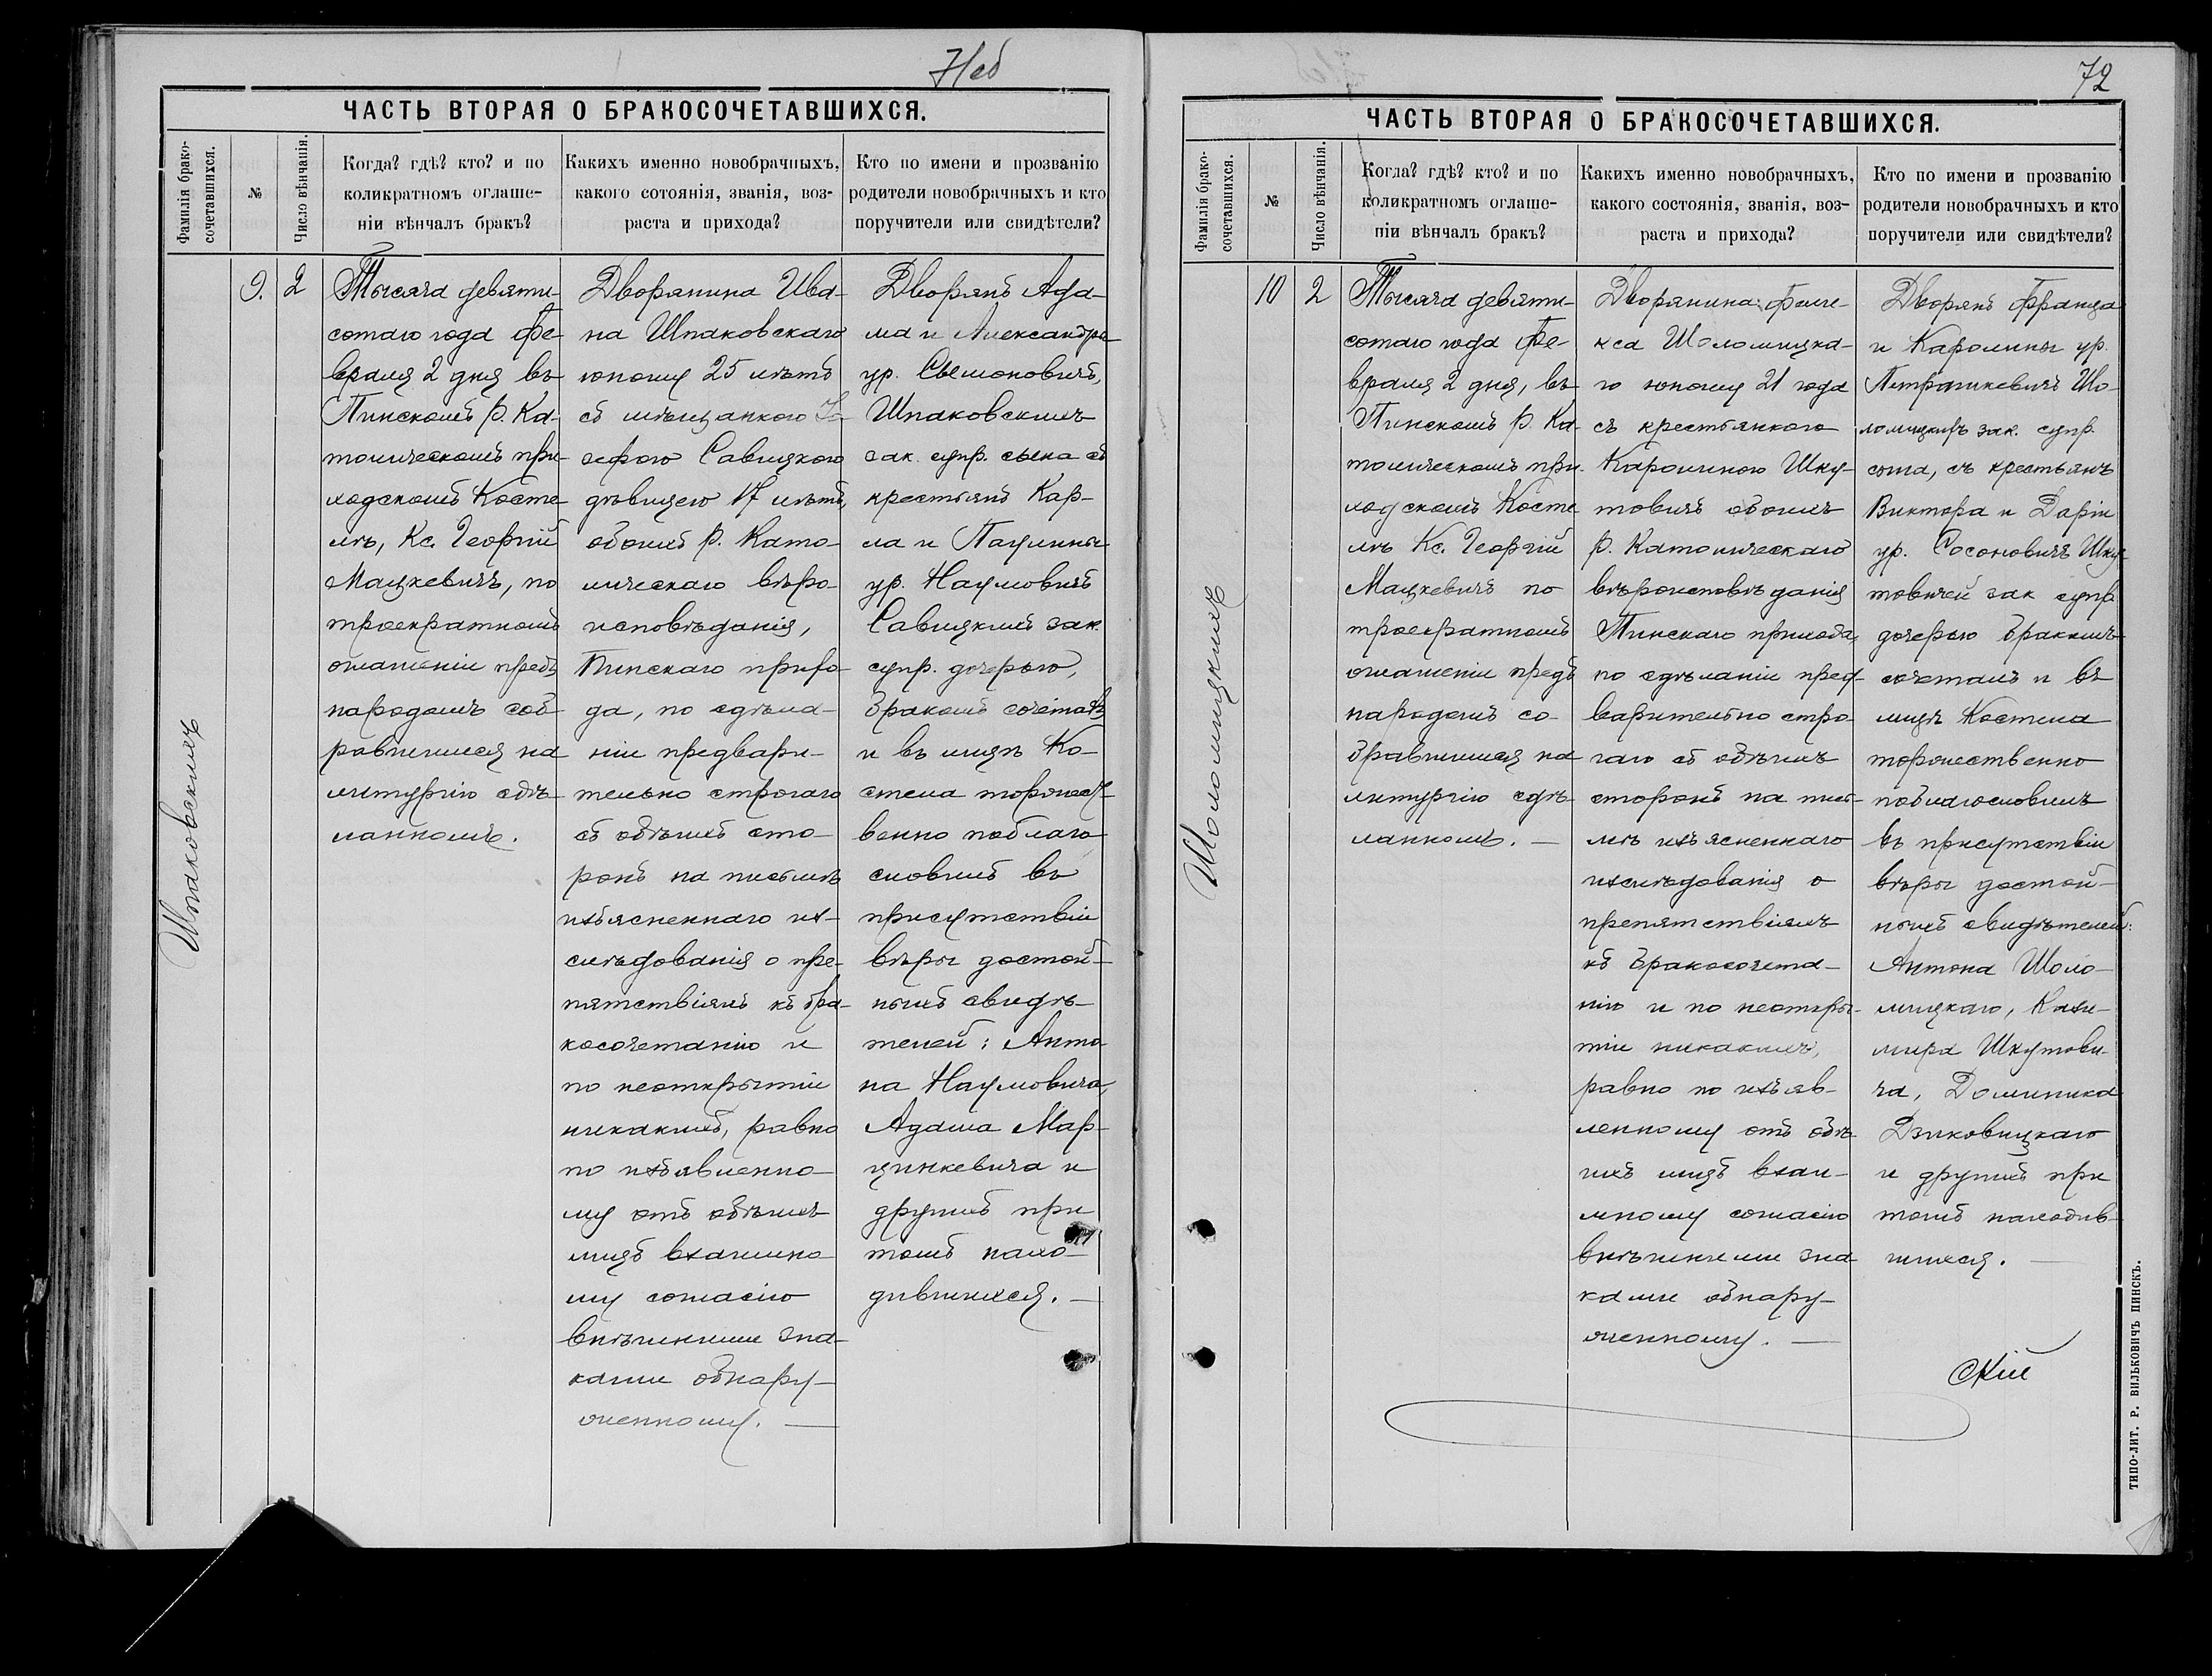 71об
ЧАСТЬ ВТОРАЯ О БРАКОСОЧЕТАВШИХСЯ.
Фамилія брако-
сочетавшихся.
№
Число вѣнчанія.
Когда? гдѣ? кто? и по
коликратномъ оглаше-
ніи вѣнчалъ бракъ?
Какихъ именно новобрачныхъ,
какого сотоянія, званія, воз-
раста и прихода?
Кто по имени и прозванію
родители новобрачныхъ и кто
поручители или свидѣтели?
Шпаковскихъ
9.
2
Тысяча девяти-
сотаго года Фе-
враля 2 дня въ
Пинскомъ Р. Ка-
толическомъ при-
ходскомъ Косте-
лѣ, Кс. Георгій
Мацкевичъ, по
троекратномъ
оглашеніи предъ
народомъ соб-
равшимся на
литургію сдѣ-
ланномъ.
Дворянина Ива-
на Шпаковскаго
юношу 25 лѣтъ
съ мѣщанкою
Савицкою
дѣвицею 17 лѣтъ,
обоихъ Р. Като-
лическаго вѣро-
исповѣданія,
Пинскаго прихо-
да, по сдѣла-
ніи предвари-
тельно строгаго
съ обѣихъ сто-
ронъ на письмѣ
изъясненнаго из-
слѣдованія о пре-
пятствіяхъ къ бра-
косочетанію и
по неоткрытіи
никакихъ, равно
по изъявленно-
му отъ обѣихъ
лицъ взаимно-
му согласію
внѣшними зна-
ками обнару-
женному. —
Дворянъ Ада-
ма и Александры
ур. Сымоновичъ,
Шпаковскихъ
зак. супр. сына съ
крестьянъ Кар-
ла и Паулины
ур. Наумовичъ
Савицкихъ зак.
супр. дочерью,
бракомъ сочеталъ
и въ лицѣ Ко-
стела торжест-
венно поблаго-
словилъ въ
присутствіи
вѣры достой-
ныхъ свидѣ-
телей: Анто-
на Наумовича,
Адама Мар-
цинкевича и
другихъ при
томъ нахо-
дившихся. —
72
ЧАСТЬ ВТОРАЯ О БРАКОСОЧЕТАВШИХСЯ.
Фамилія брако-
сочетавшихся.
№
Число вѣнчанія.
Когда? гдѣ? кто? и по
коликратномъ оглаше-
ніи вѣнчалъ бракъ?
Какихъ именно новобрачныхъ,
какого состоянія, званія, воз-
раста и прихода?
Кто по имени и прозванію
родители новобрачныхъ и кто
поручители или свидѣтели?
Шоломицкихъ
10
2
Тысяча девяти-
сотаго года Фе-
враля 2 дня, въ
Пинскомъ Р. Ка-
толическомъ при-
ходскомъ Косте-
лѣ Кс. Георгій
Мацкевичъ по
троекратномъ
оглашеніи предъ
народомъ со-
бравшимся на
литургію сдѣ-
ланномъ. —
Дворянина Фели-
кса Шоломицка-
го юношу 21 года
съ крестьянкою
Каролиною Шку-
товичъ обоихъ
Р. Католическаго
вѣроисповѣданія
Пинскаго прихода,
по сдѣланіи пред-
варительно стро-
гаго съ обѣихъ
сторонъ на пись-
мѣ изъясненнаго
изслѣдованія о
препятствіяхъ
къ бракосочета-
нію и по неоткры-
тіи никакихъ,
равно по изъяв-
ленному отъ обѣ-
ихъ лицъ взаи-
мному согласію
внѣшними зна-
ками обнару-
женному. —
Дворянъ Франца
и Каролины ур.
Петрашкевичъ Шо-
ломицкихъ зак. супр.
сына, съ крестьянъ
Виктора и Даріи
ур. Сосоновичъ Шку-
товичей зак. супр
дочерью бракомъ
сочеталъ и въ
лицѣ Костела
торжественно
поблагословилъ
въ присутствіи
вѣры достой-
ныхъ свидѣтелей:
Антона Шоло-
мицкаго, Кази-
мира Шкутови-
ча, Доминика
Дзиковицкаго
и другихъ при
томъ находив-
шихся. —
ТИПО-ЛИТ. Р. ВИЛЬКОВИЧЪ ПИНСКЪ.